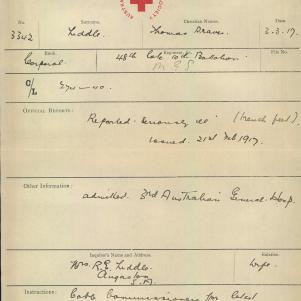 AUST
SOCIETY
No. Surname. Christian Names. Date.
3342 Liddle Thomas Draver 2.3.17
Rank. Regiment. File No.
Corporal 48th late 10th Battalion
M.G.S
OFFICIAL REPORTS:
Reported seriously ill (trench feet).
issued 21st Feb 1917.
Other Information:
admitted 3rd Australian General Hosp.
Inquirer's Name and Address. Relation.
Mrs. R.E. Liddle. Wife.
Angaston
S.A.
Instructions: Cable Commissioners for latest